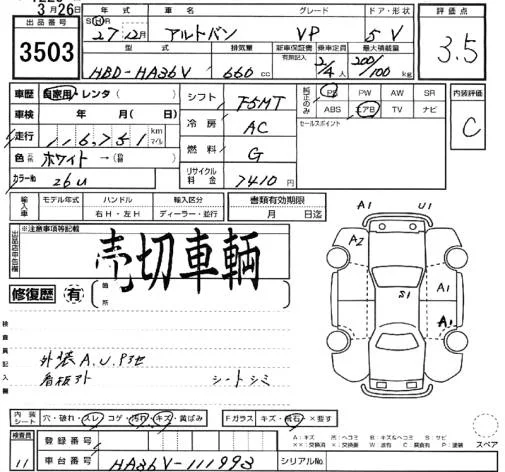 3月26日
出品番号 3503
年式 車名 グレード ドア・形状 評価点
SH 27年 12月 アルトバン VP 5V 3.5
型式 排気量 新車保証書 乗車定員 最大積載量
有無記入
HBD-HA36V 660cc 2/4人 200/100kg
車歴 自家用・レンタ( ) シフト F5MT 純正のみ PS PW AW SR 内装評価
ABS エアB TV ナビ C
車検 年 月( ) 冷房 AC セールスポイント
走行 116,751 km マイル
色 ホワイト→( ) 燃料 G
カラーNo 26U リサイクル料金 7410円
輸入車 モデル年式 ハンドル 輸入区分 書類有効期限
右H・左H ディーラー・並行 月 日迄
出品店申告欄 ※注意事項等記載
売切車輌
修復歴 有 箇所
A1 U1
A2
S1
A1
検査員記入欄
外装A.U.P3ヶ
看板アト シートシミ
内装シート 穴・破れ・スレ コゲ・汚れ・キズ・黄ばみ Fガラス キズ・飛石・×要す
スペア
検査員 11 登録番号
A:キズ B:キズ&ヘコミ S:サビ
××:交換済 ×:交換要 W:波有 C:腐食有 P:塗装
車台番号 HA36V-111993 シリアルNo.